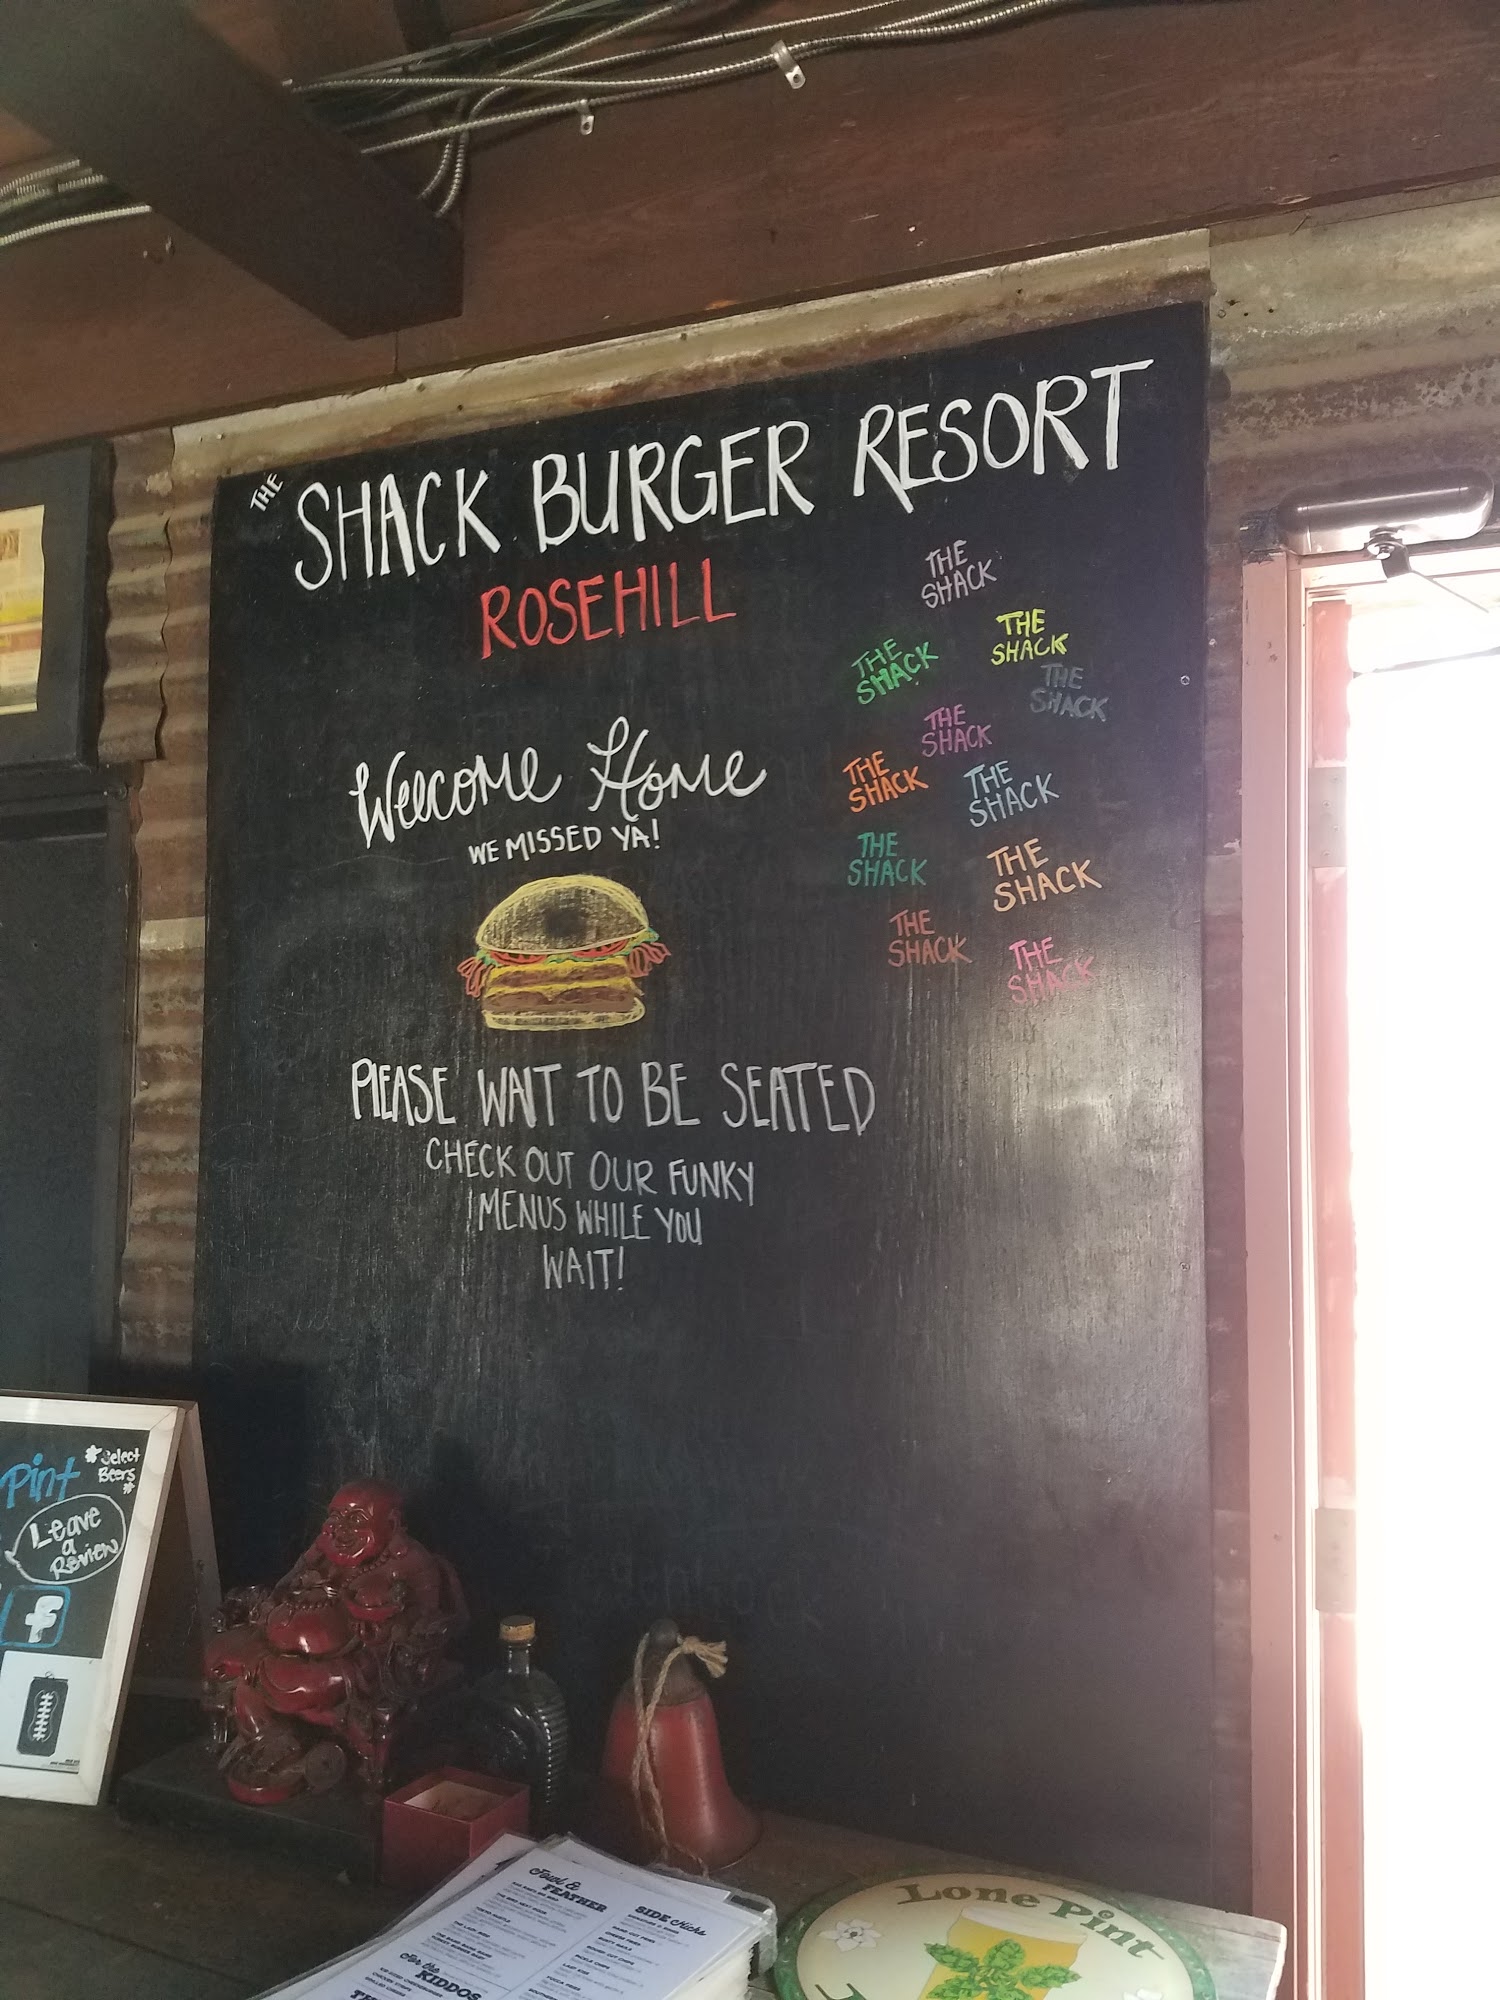 THE
SHACK BURGER RESORT
ROSEHILL
THE
SHACK
THE
SHACK
THE
SHACK
THE
SHACK
THE
SHACK
THE
SHACK
THE
SHACK
THE
SHACK
THE
SHACK
THE
SHACK
THE
SHACK
Welcome Home
WE MISSED YA!
PLEASE WAIT TO BE SEATED
CHECK OUT OUR FUNKY
MENUS WHILE YOU
WAIT!
Pint
*Select
Beers*
Leave
a
Review
f
Fowl &
FEATHER
SIDE Chicks
For the
KIDDOS
Lone Pint